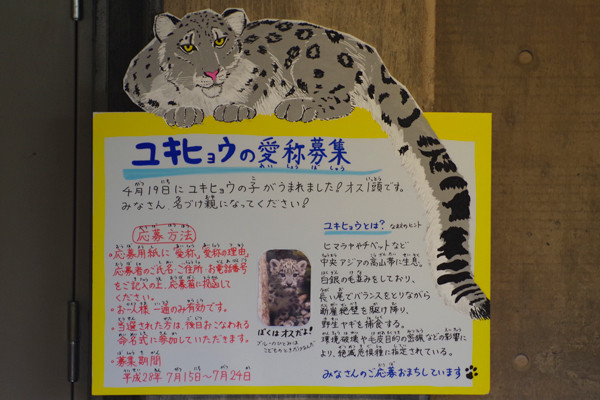 ユキヒョウの愛称募集
あいしょうぼしゅう
4月19日にユキヒョウの子がうまれました！オス1頭です。
みなさん、名づけ親になってください！
応募方法
・応募用紙に愛称、愛称の理由、
応募者のご氏名・ご住所・お電話番号
をご記入の上、応募箱に投函して
ください。
・お一人様一通のみ有効です。
・当選された方は、後日おこなわれる
命名式に参加していただきます。
・募集期間
平成28年 7月15日～7月24日
ぼくはオスだよ！
ブルーのひとみは
こどものときだけなんだ
ユキヒョウとは？ なまえのヒント
ヒマラヤやチベットなど
中央アジアの高山帯に生息。
白銀の毛並みをしており、
長い尾でバランスをとりながら
断崖絶壁を駆け降り、
野生ヤギを捕食する。
環境破壊や毛皮目的の密猟などの影響に
より、絶滅危惧種に指定されている。
みなさんのご応募おまちしています